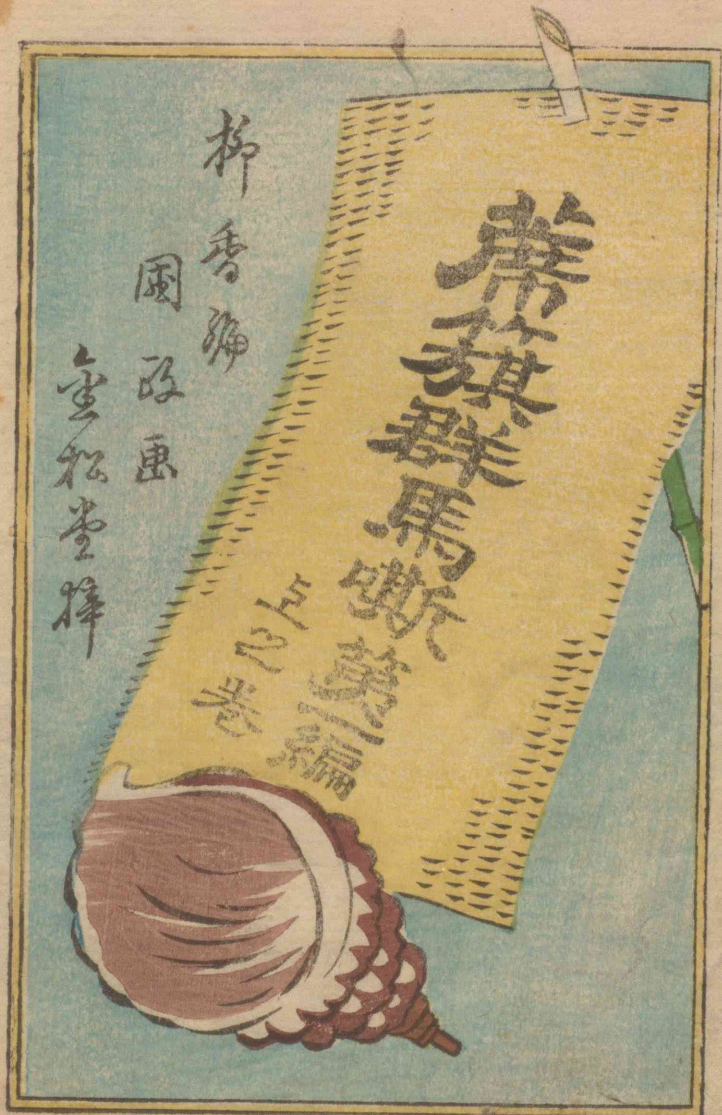 蓆籏群馬嘶第一編
上之巻
柳香編
國政画
金松堂梓